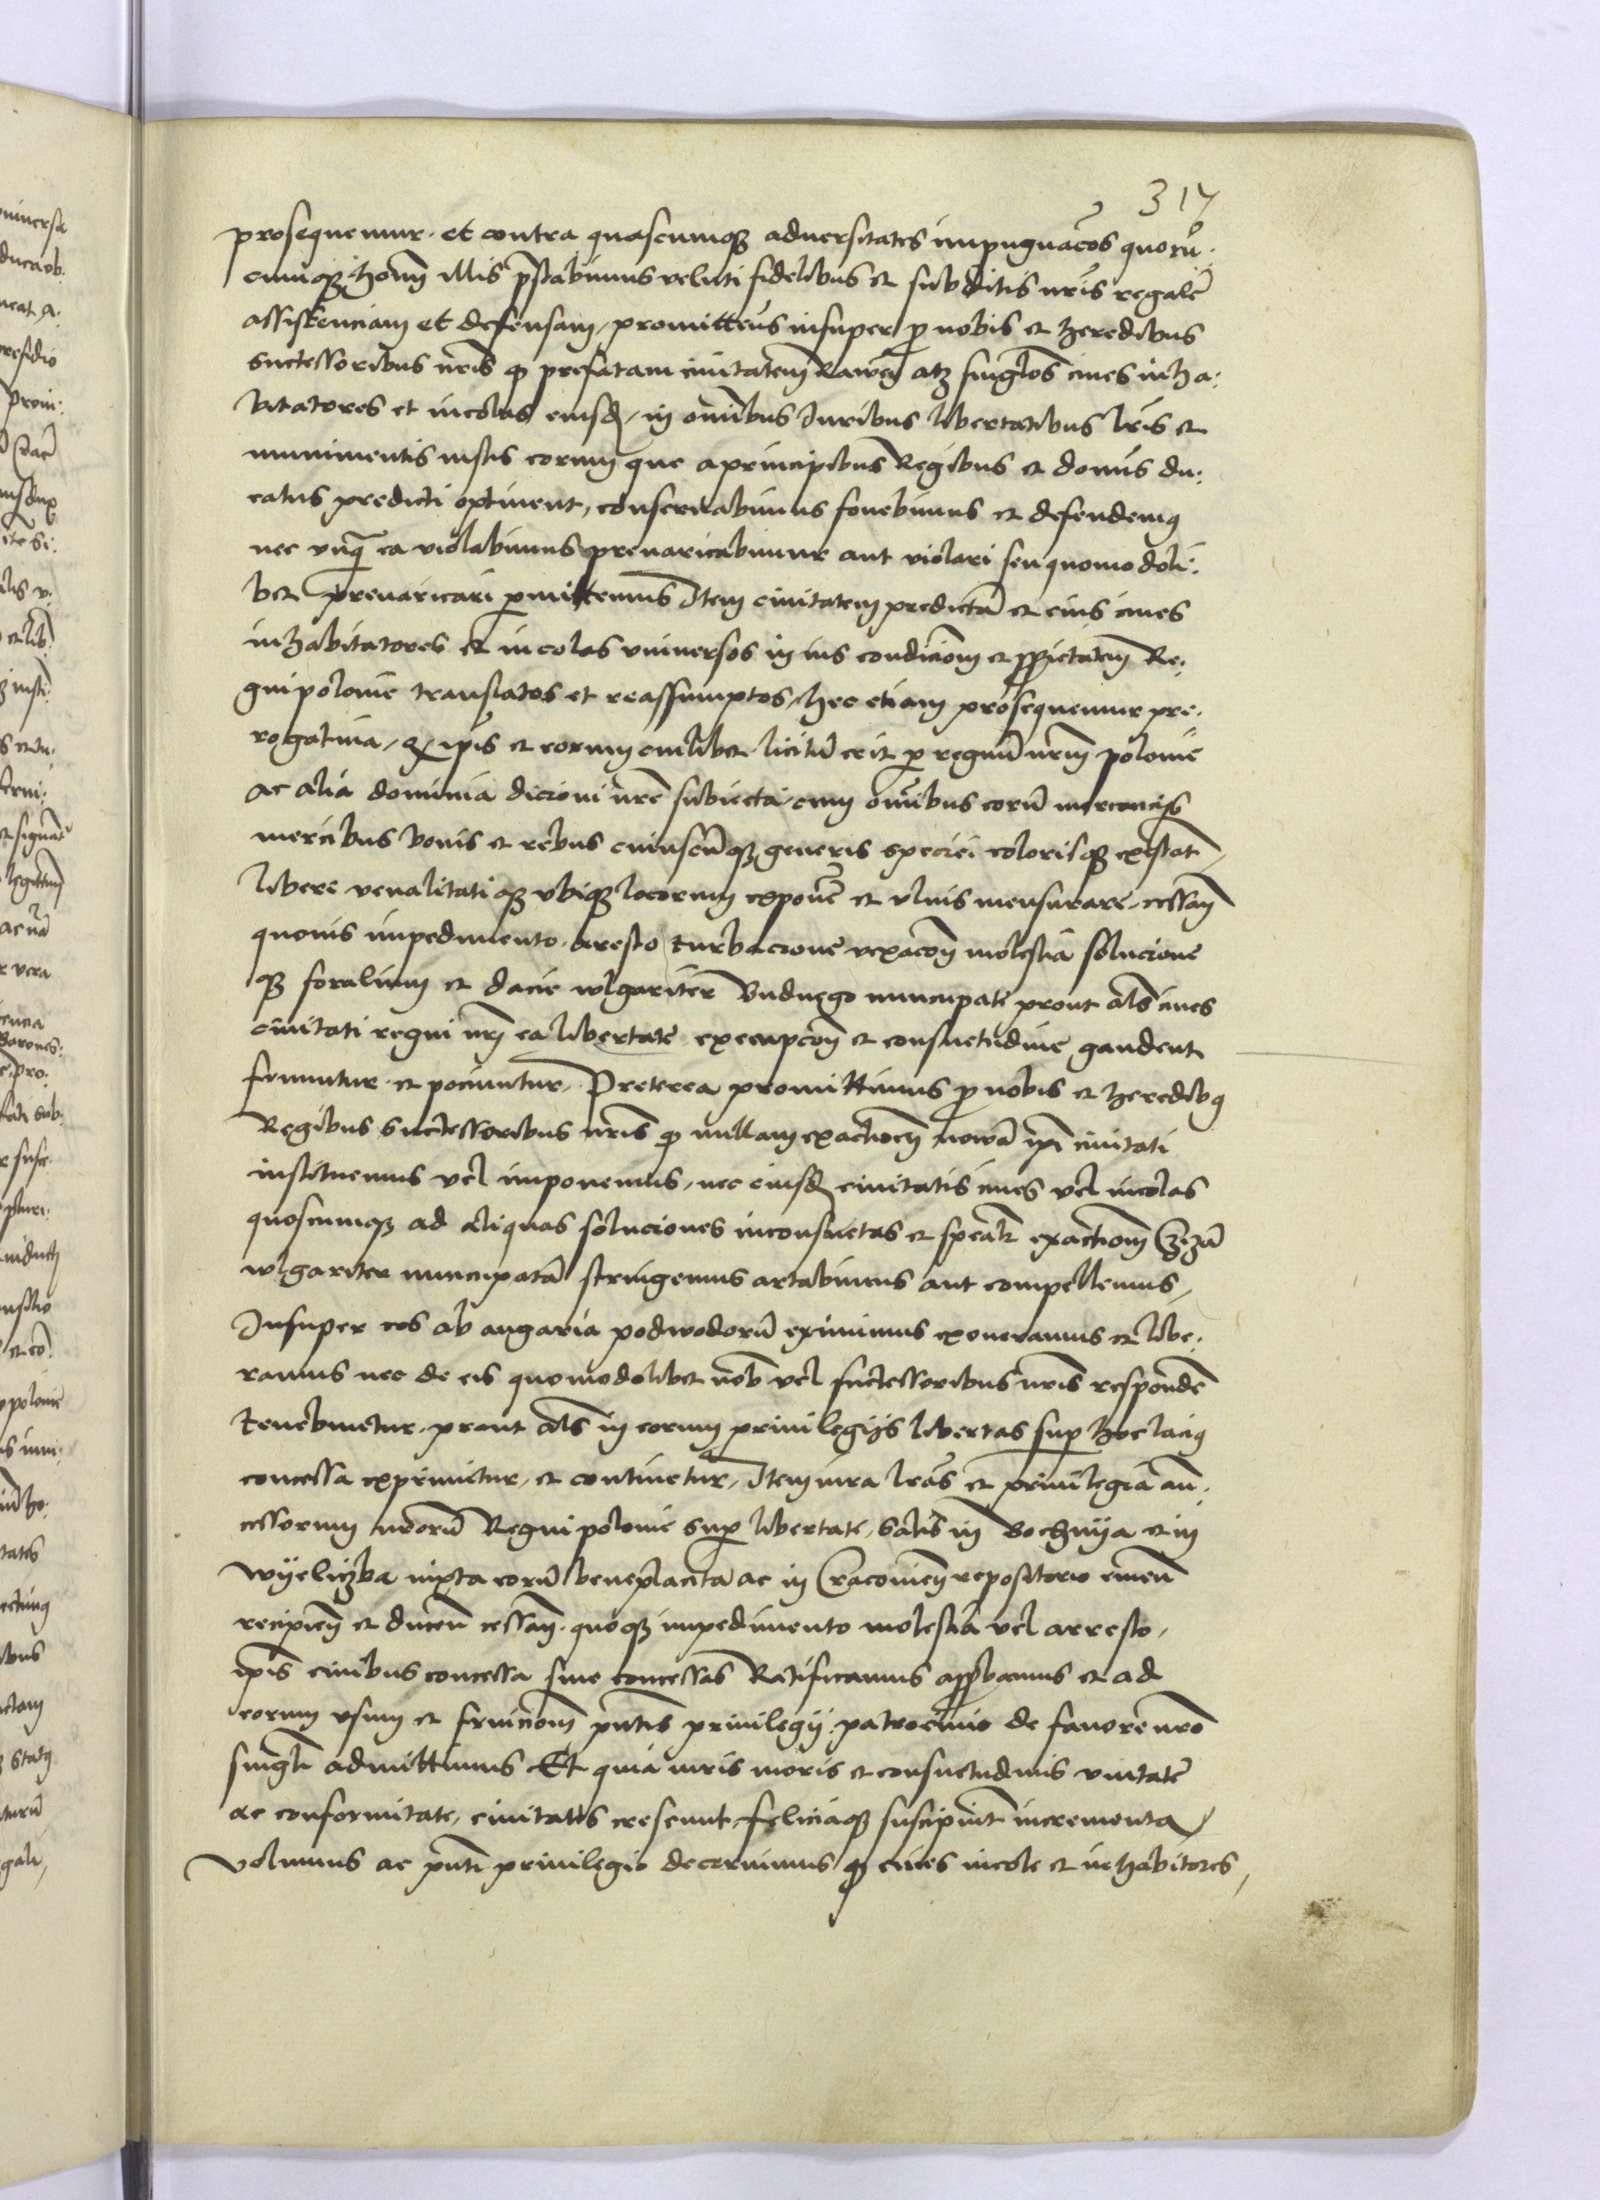 317
prosequemur. et contra quascumq3 aduersitates impugnacoēs quorū:
cumq3 hoīm illis prestabimus veluti fidelibus et subditis nrīs regalē
assistenciam et defensam, promittētes insuper pro nobis et heredibus
successoribus nrīs qd prefatam ciuitatem Rawēn atq3 singlōs ciues inha:
bitatores et incolas eiusd, in omībus Juribus libertatibus lrīs et
munimentis iustis eorum que a principibus Regibus et domīs du:
catus predicti optinent, conseruabimus fouebimus et defendemus
nec vnqm̄ ea violabimus preuaricabimur aut violari seu quomodoli:
bet preuaricari permittemus Item ciuitatem predictā et eius ciues
inhabitatores et incolas vniuersos in ius condicionem et proprietatem Re:
gni polonie translatos et reassumptos, hec etiam prosequemur pre:
rogatiua, qd ipīs et eorum cuilibet licitū erit per regnū nrm̄ polonie
ac alia dominia dicioni nrē subiecta, cum omībus eorū mercancijs
mercibus bonis et rebus cuiuscūq3 generis speciei colorisq3 existāt,
libere venalitatiq3 vbiq3 locorum exponere et vlnis mensurare, cessan̄
quouis impedimento. aresto turbacione vexacoē molestia solucione
q3 foralium et dacie wlgariter Budnego nuncupate prout als̄ ciues
ciuitati regni nrī ea libertate exempcoē et consuetudine gaudent
fruuntur et pociuntur. Preterea promittimus pro nobis et heredibus
Regibus successoribus nrīs qd nullam exactioēm nowā ipī ciuitati
instituemus vel imponemus, nec eiusd ciuitatis ciues vel incolas
quoscumq3 ad aliquas soluciones inconsuetas et specialr̄ exactioēm Czizā
wlgariter nuncupatā stringemus artabimus aut compellemus,
Insuper eos ab angaria podwodorū eximimus exoneramus et libe:
ramus nec de eis quomodolibet nob̄ vel successoribus nrīs respondē
tenebuntur. prout als̄ in eorum priuilegijs libertas super hoc lacius
concessa exprimitur, et continetur, Item iura lrās et priuilegia an:
cessorum nrōrū Regni polonie super libertate, salis in Bochnija et in
wijeliczka iuxta eorū beneplacita ac in Cracouien̄ repositorio emen̄
recipien̄ et ducen̄ cessan̄. quoq3 impedimento molestia vel arresto,
ipīs ciuibus concessa siue concessas Ratificamus approbamus et ad
eorum vsum et fruicionem pn̄tis priuilegij patrocinio de fauore nrō
singlī admittimus Et quia iuris moris et consuetudinis vnitate
ac conformitate, ciuitates crescunt feliciaq3 suscipiūt incrementa,
volumus ac pn̄ti priuilegio decernimus qd ciues incole et inhabitores,